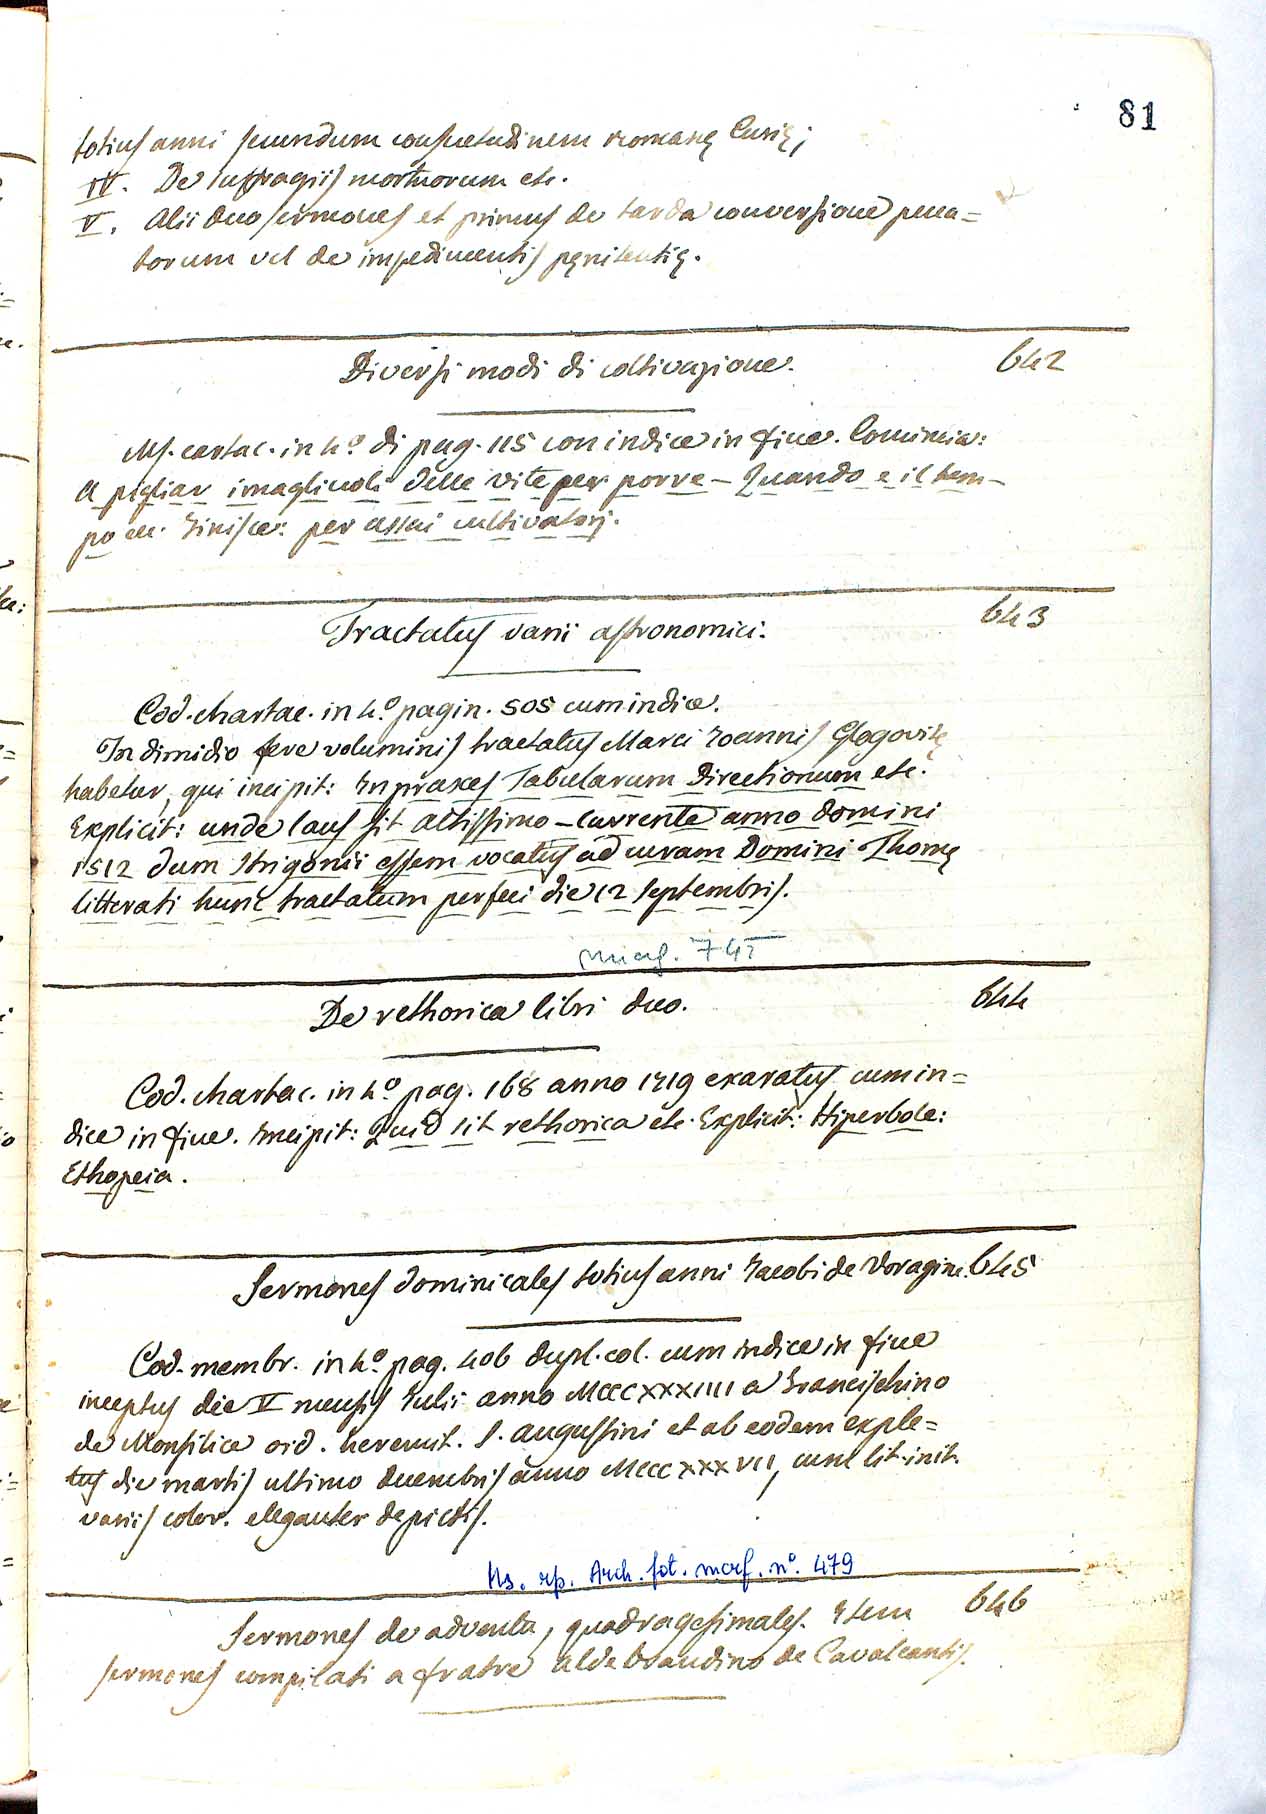 81
totius anni secundum consuetudinem romanę Curię;
IV. De suffragiis mortuorum etc.
V. Alii duo sermones et primus de tarda conversione pecca=
torum vel de impedimentis pęnitentię.
Diversi modi di coltivazione. 642
Ms. cartac. in 4.º di pag. 115 con indice in fine. Comincia:
A pigliar i magliuoli delle vite per porre – Quando e il tem–
po ec. Finisce: per assai cultivatorj.
Tractatus varii astronomici. 643
Cod. chartac. in 4.º pagin. 505 cum indice.
In dimidio fere voluminis tractatus Marci Ioannis Glogovitę
habetur, qui incipit: In praxes Tabularum Directionum etc.
Explicit: unde laus sit Altissimo – Currente anno domini
1512 dum Strigonii essem vocatus ad curam Domini Thomę
litterati hunc tractatum perfeci die 12 septembris.
De rethorica libri duo. 644
Cod. chartac. in 4º pag. 168 anno 1719 exaratus cum in=
dice in fine. Incipit: Quid sit rethorica etc. Explicit: Hiperbole:
Ethopeia.
Sermones dominicales totius anni Iacobi de Voragine. 645
Cod. membr. in 4º pag. 406 dupl. col. cum indice in fine
inceptus die V mensis Iulii anno MCCCXXXIIII a Francischino
de Monsilice ord. heremit. S. Augustini et ab eodem exple=
tus die martis ultimo decembris anno MCCCXXXVII, cum lit. init.
variis color. eleganter depictis.
Ms. rip. Arch. fot. marf. nº. 479
Sermones de adventu, quadragesimales. Item 646
sermones compilati a fratre Aldebrandino de Cavalcantis.